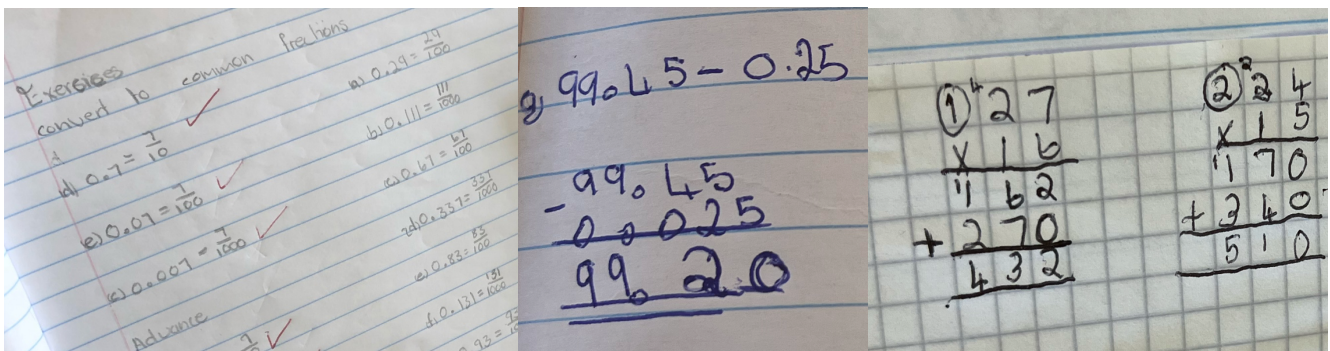 Exercises
convert to common frections
d) 0.7 = 7/10
e) 0.07 = 7/100
c) 0.007 = 7/1000
Advance
a) 0.29 = 29/100
b) 0.111 = 111/1000
c) 0.67 = 67/100
d) 0.337 = 337/1000
e) 0.83 = 83/100
f) 0.131 = 131/1000
g) 99.45 - 0.25
- 99.45
0.025
99.20
1 4 27
x 16
1 162
+ 270
432
2 2 34
x 15
1 170
+ 340
510